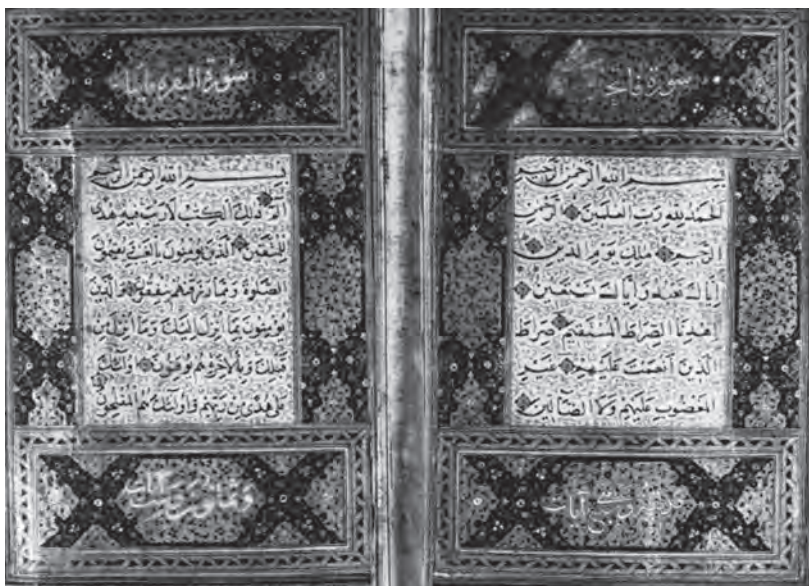 سورة فاتحة
بسم الله الرحمن الرحيم
الحمد لله رب العلمين الرحمن
الرحيم ملك يوم الدين
اياك نعبد واياك نستعين
اهدنا الصراط المستقيم صراط
الذين انعمت عليهم غير
المغضوب عليهم ولا الضالين
سبع آيات
سورة البقرة مايتا
بسم الله الرحمن الرحيم
الم ذلك الكتب لا ريب فيه هدى
للمتقين الذين يؤمنون بالغيب ويقيمون
الصلوة ومما رزقنهم ينفقون والذين
يؤمنون بما انزل اليك وما انزل من
قبلك وبالاخرة هم يوقنون اولئك
على هدى من ربهم واولئك هم المفلحون
وثمانون